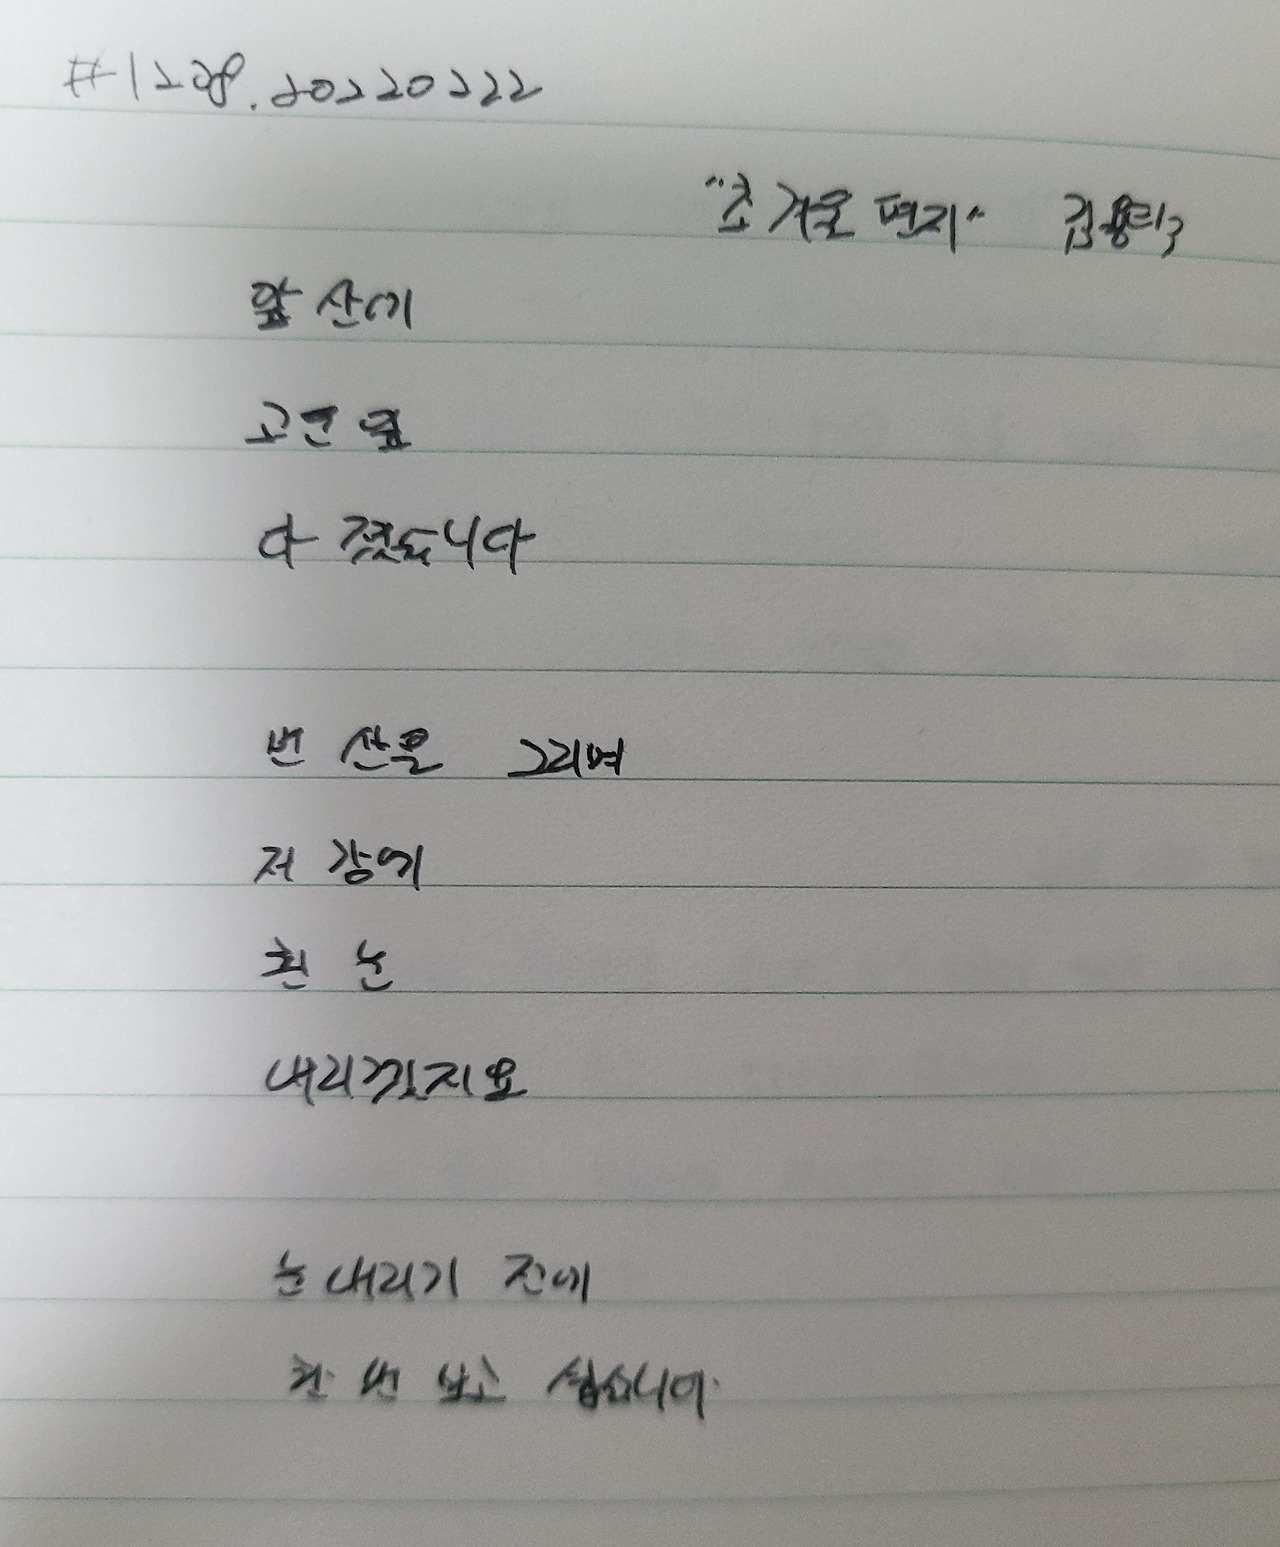 #1208. 20220222
"초겨울 편지" 김용택
앞 산에
고운 잎
다 졌습니다
빈 산을 그리며
저 강에
흰 눈
내리겠지요
눈 내리기 전에
한 번 보고 싶습니다